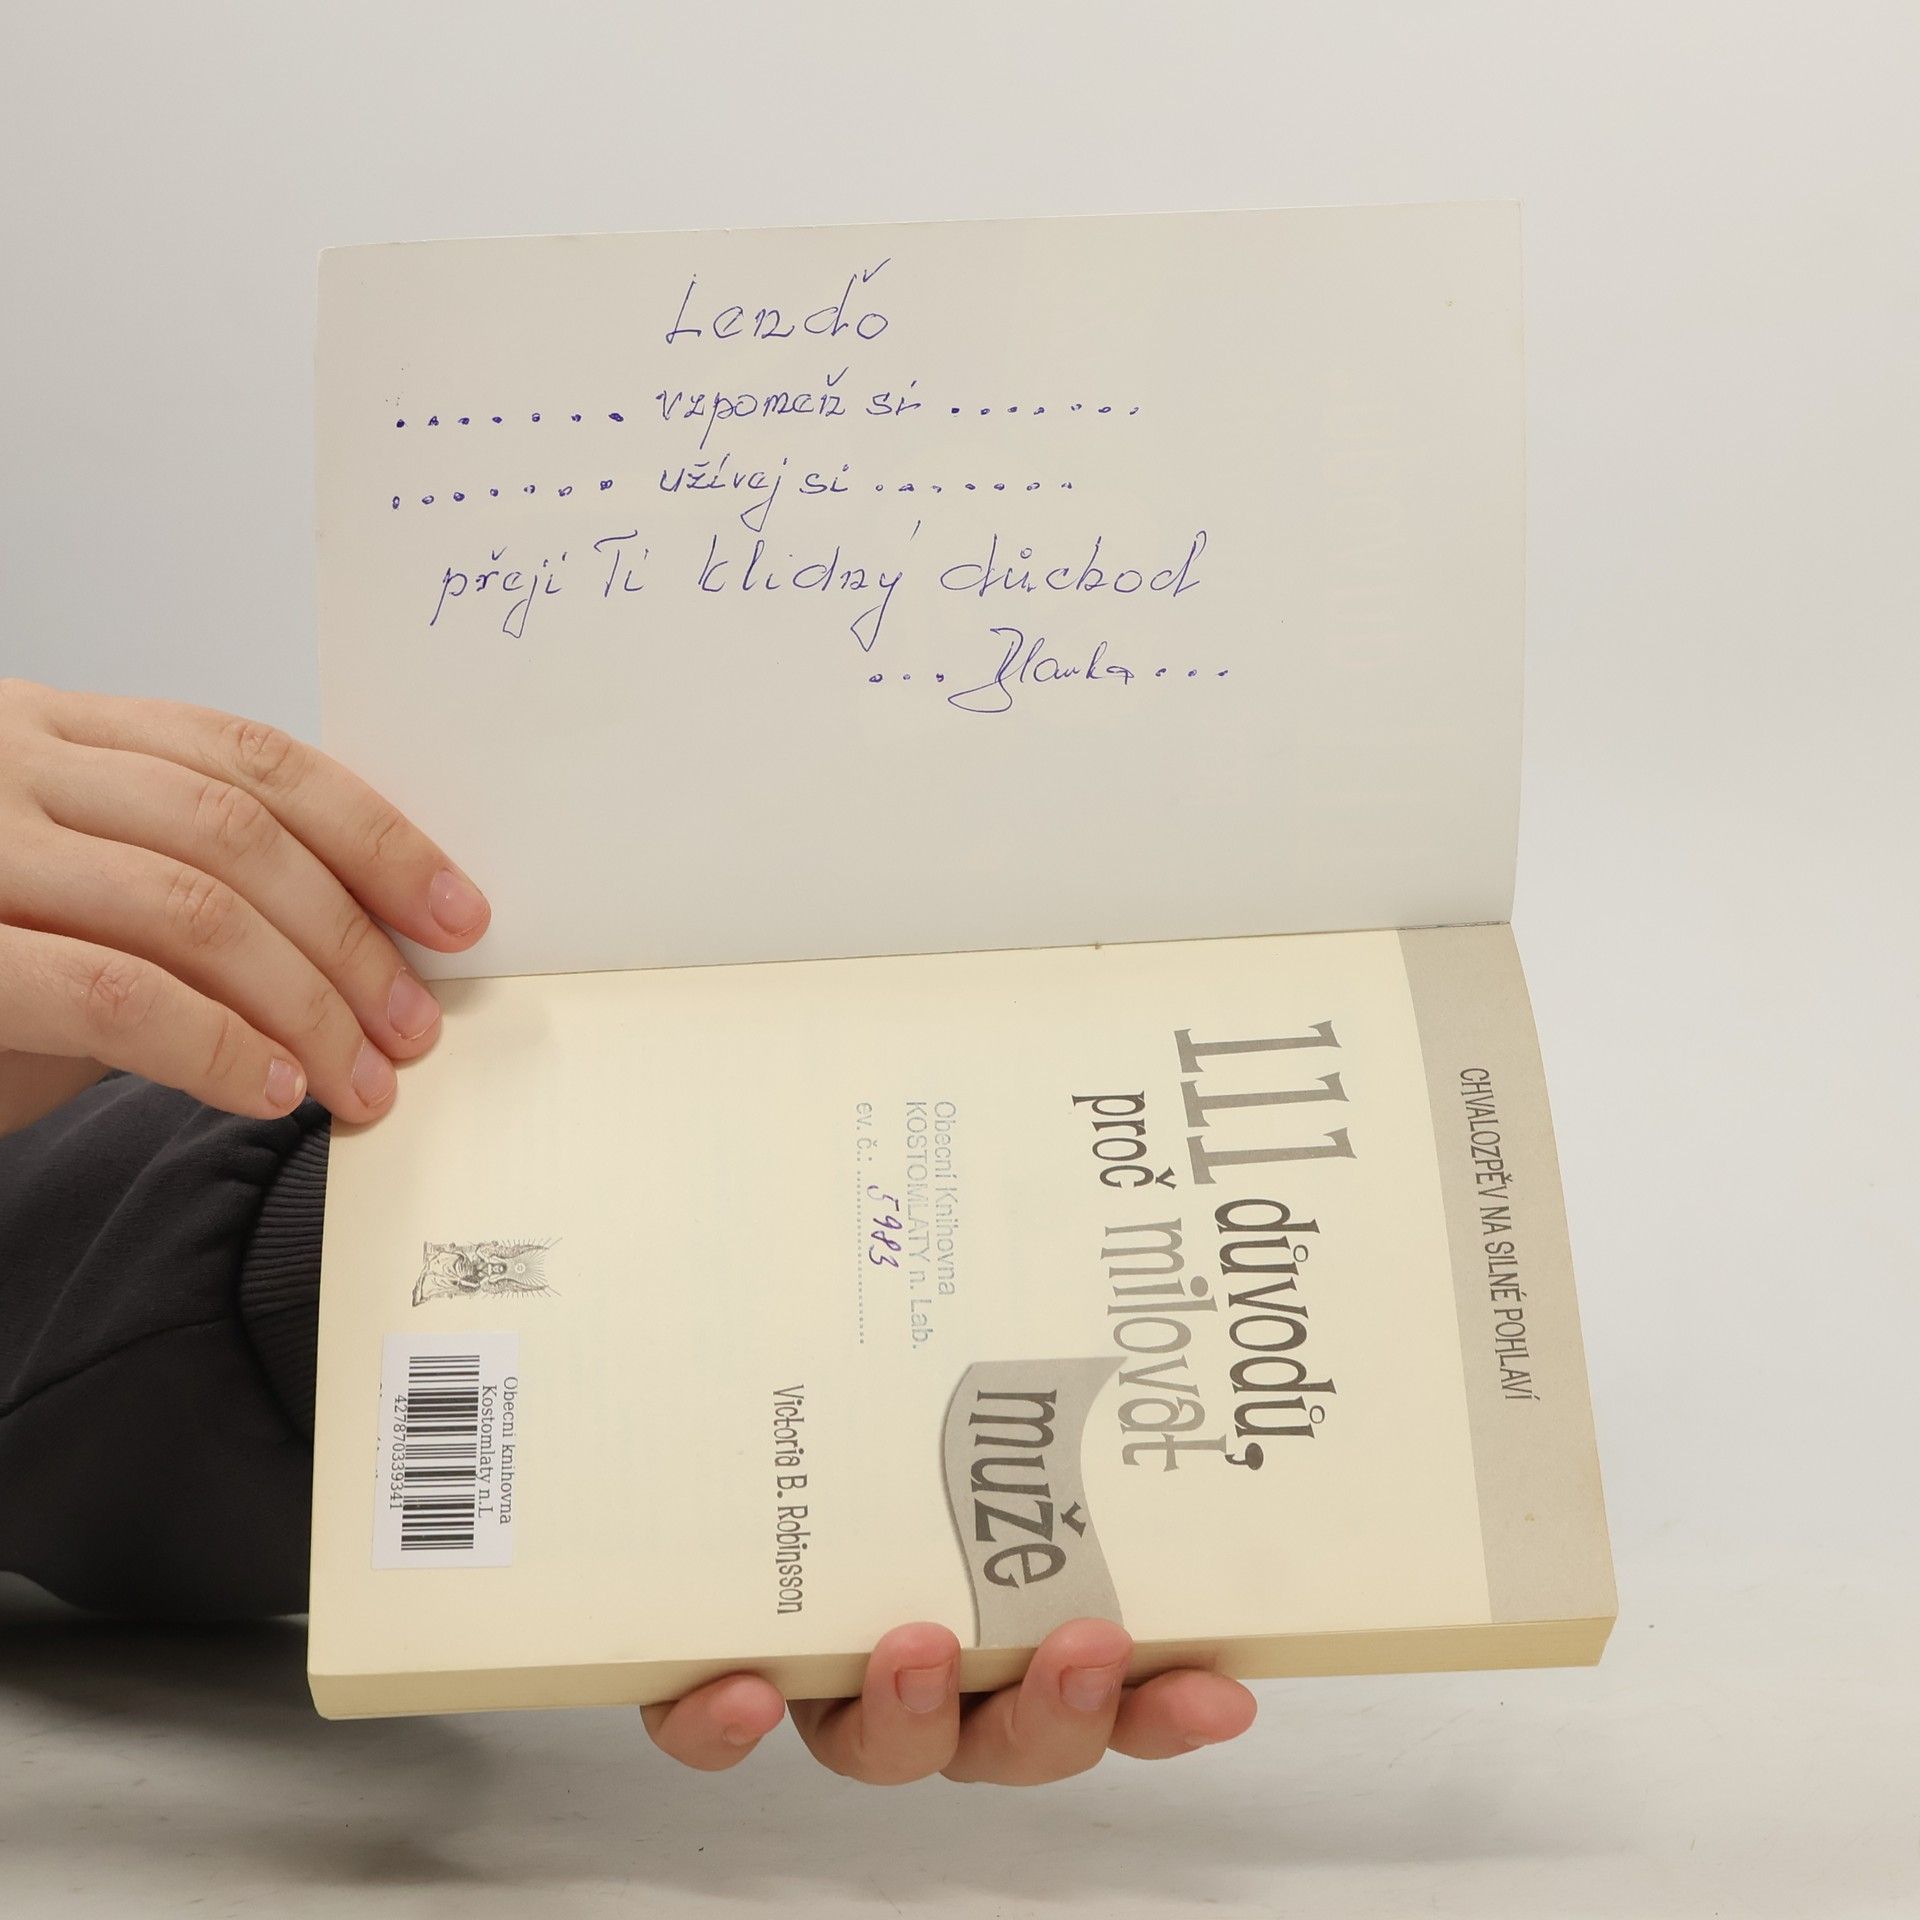 Lenďo
....... vzpomeň si .......
....... užívej si .......
přeji Ti klidný důchod
... Blanka ...
CHVALOZPĚV NA SILNÉ POHLAVÍ
111 důvodů,
proč milovat
muže
Obecní Knihovna
KOSTOMLATY n. Lab.
ev. č.: 5983
Victoria B. Robinsson
Obecni knihovna
Kostomlaty n.L
427870339341